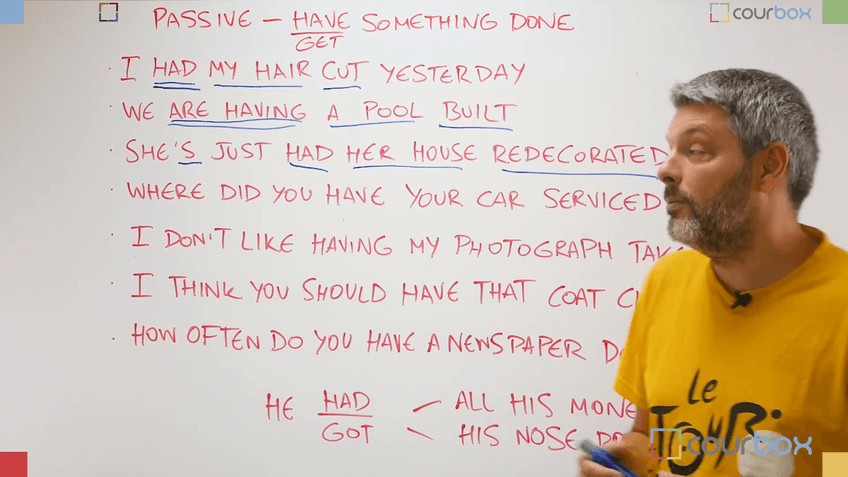 courbox
PASSIVE – HAVE SOMETHING DONE
GET
· I HAD MY HAIR CUT YESTERDAY
· WE ARE HAVING A POOL BUILT
· SHE'S JUST HAD HER HOUSE REDECORATED
· WHERE DID YOU HAVE YOUR CAR SERVICED
· I DON'T LIKE HAVING MY PHOTOGRAPH
· I THINK YOU SHOULD HAVE THAT COAT
· HOW OFTEN DO YOU HAVE A NEWSPAPER
HE HAD ALL HIS
GOT HIS NOSE
Le
TOUR
courbox